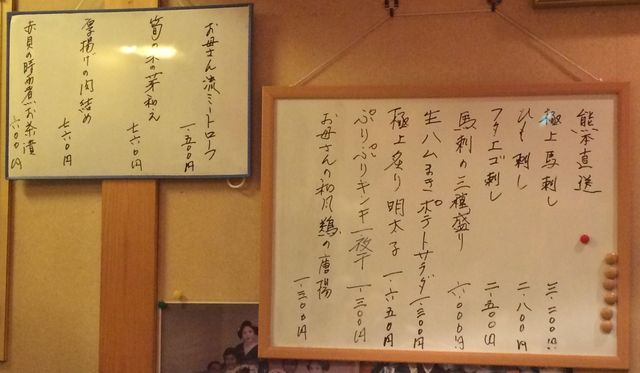 お母さん流ミートローフ 一.五〇〇円
筍の木の芽和え 七六〇円
厚揚げの肉詰め 七六〇円
赤貝の時雨煮お茶漬 六〇〇円
熊本直送
極上馬刺し 三.二〇〇円
ひも刺し 二.八〇〇円
フタエゴ刺し 二.五〇〇円
馬刺の三種盛り 六.〇〇〇円
生ハムまきポテトサラダ 一.三〇〇円
極上炙り明太子 一.六五〇円
ぷりぷりキンキ一夜干 一.三〇〇円
お母さんの和風鶏の唐揚 一.三〇〇円